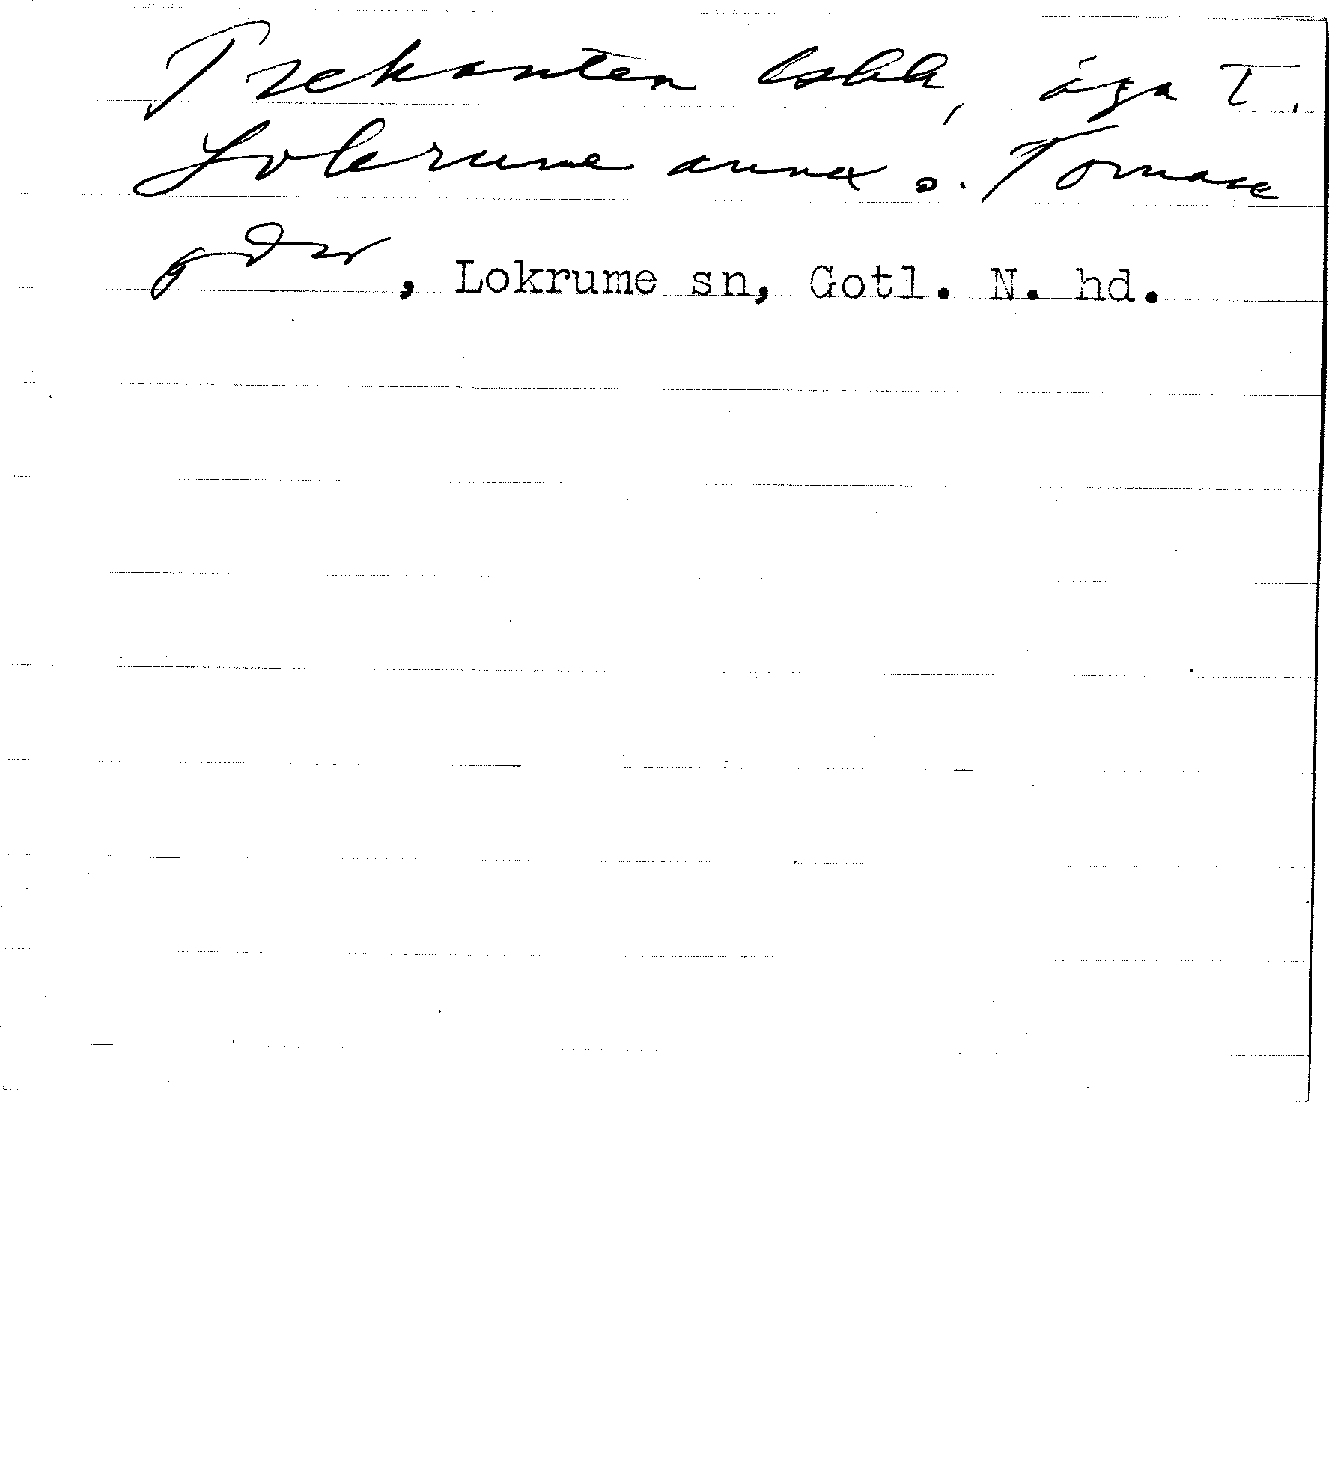 Trekanten lshh, äga T.
Lokrume annex o. Tomase
gdr, Lokrume sn, Gotl. N. hd.